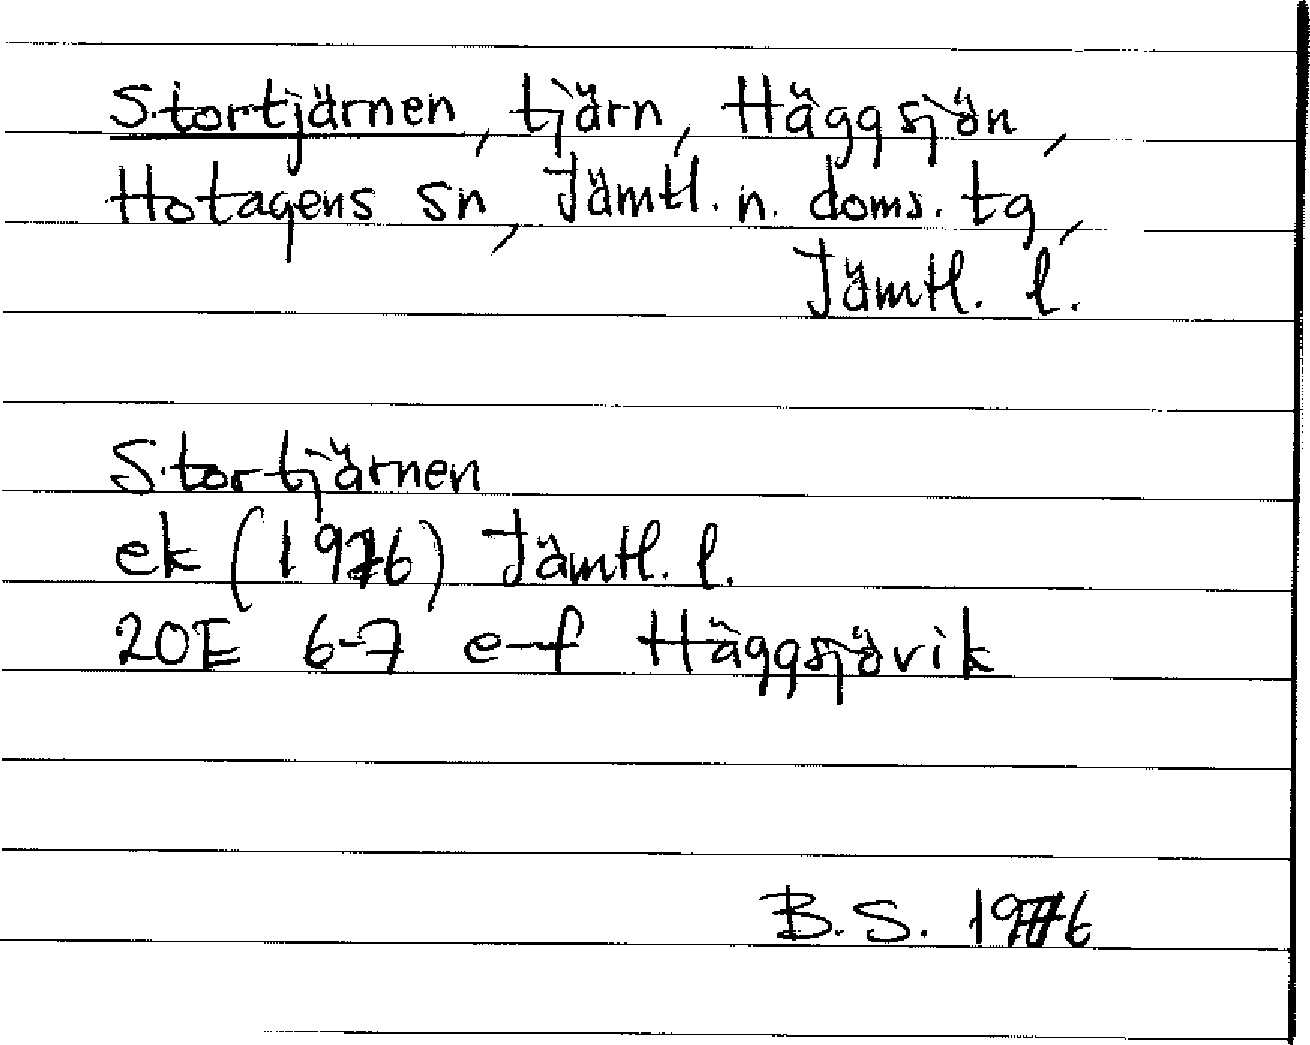 Stortjärnen, tjärn, Häggsjön,
Hotagens sn, Jämtl. n. doms. tg,
Jämtl. l.
Stortjärnen
ek (1976) Jämtl. l.
20E 6-7 e-f Häggsjövik
B.S. 1976